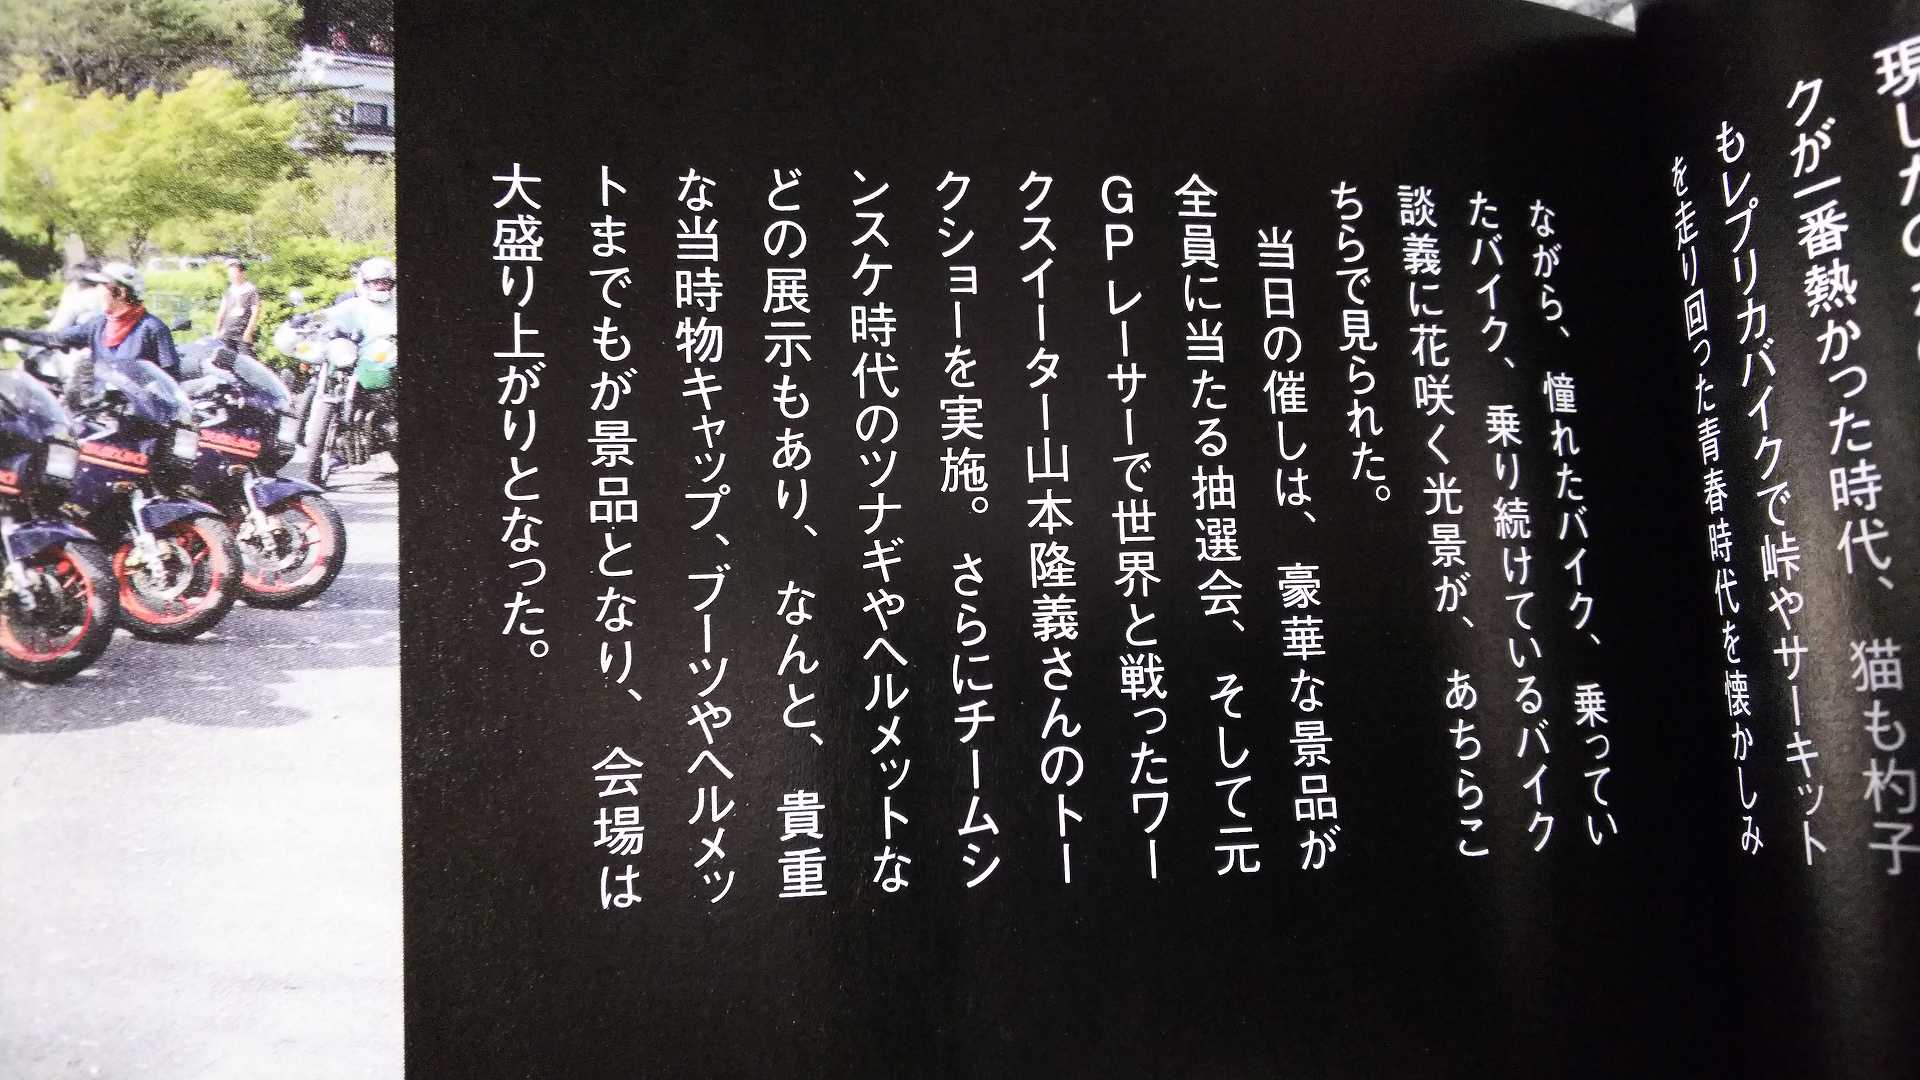 クが一番熱かった時代、猫も杓子
もレプリカバイクで峠やサーキット
を走り回った青春時代を懐かしみ
ながら、憧れたバイク、乗ってい
たバイク、乗り続けているバイク
談義に花咲く光景が、あちらこ
ちらで見られた。
当日の催しは、豪華な景品が
全員に当たる抽選会、そして元
GPレーサーで世界と戦ったワー
クスイーター山本隆義さんのトー
クショーを実施。さらにチームシ
ンスケ時代のツナギやヘルメットな
どの展示もあり、なんと、貴重
な当時物キャップ、ブーツやヘルメッ
トまでもが景品となり、会場は
大盛り上がりとなった。
SUZUKI